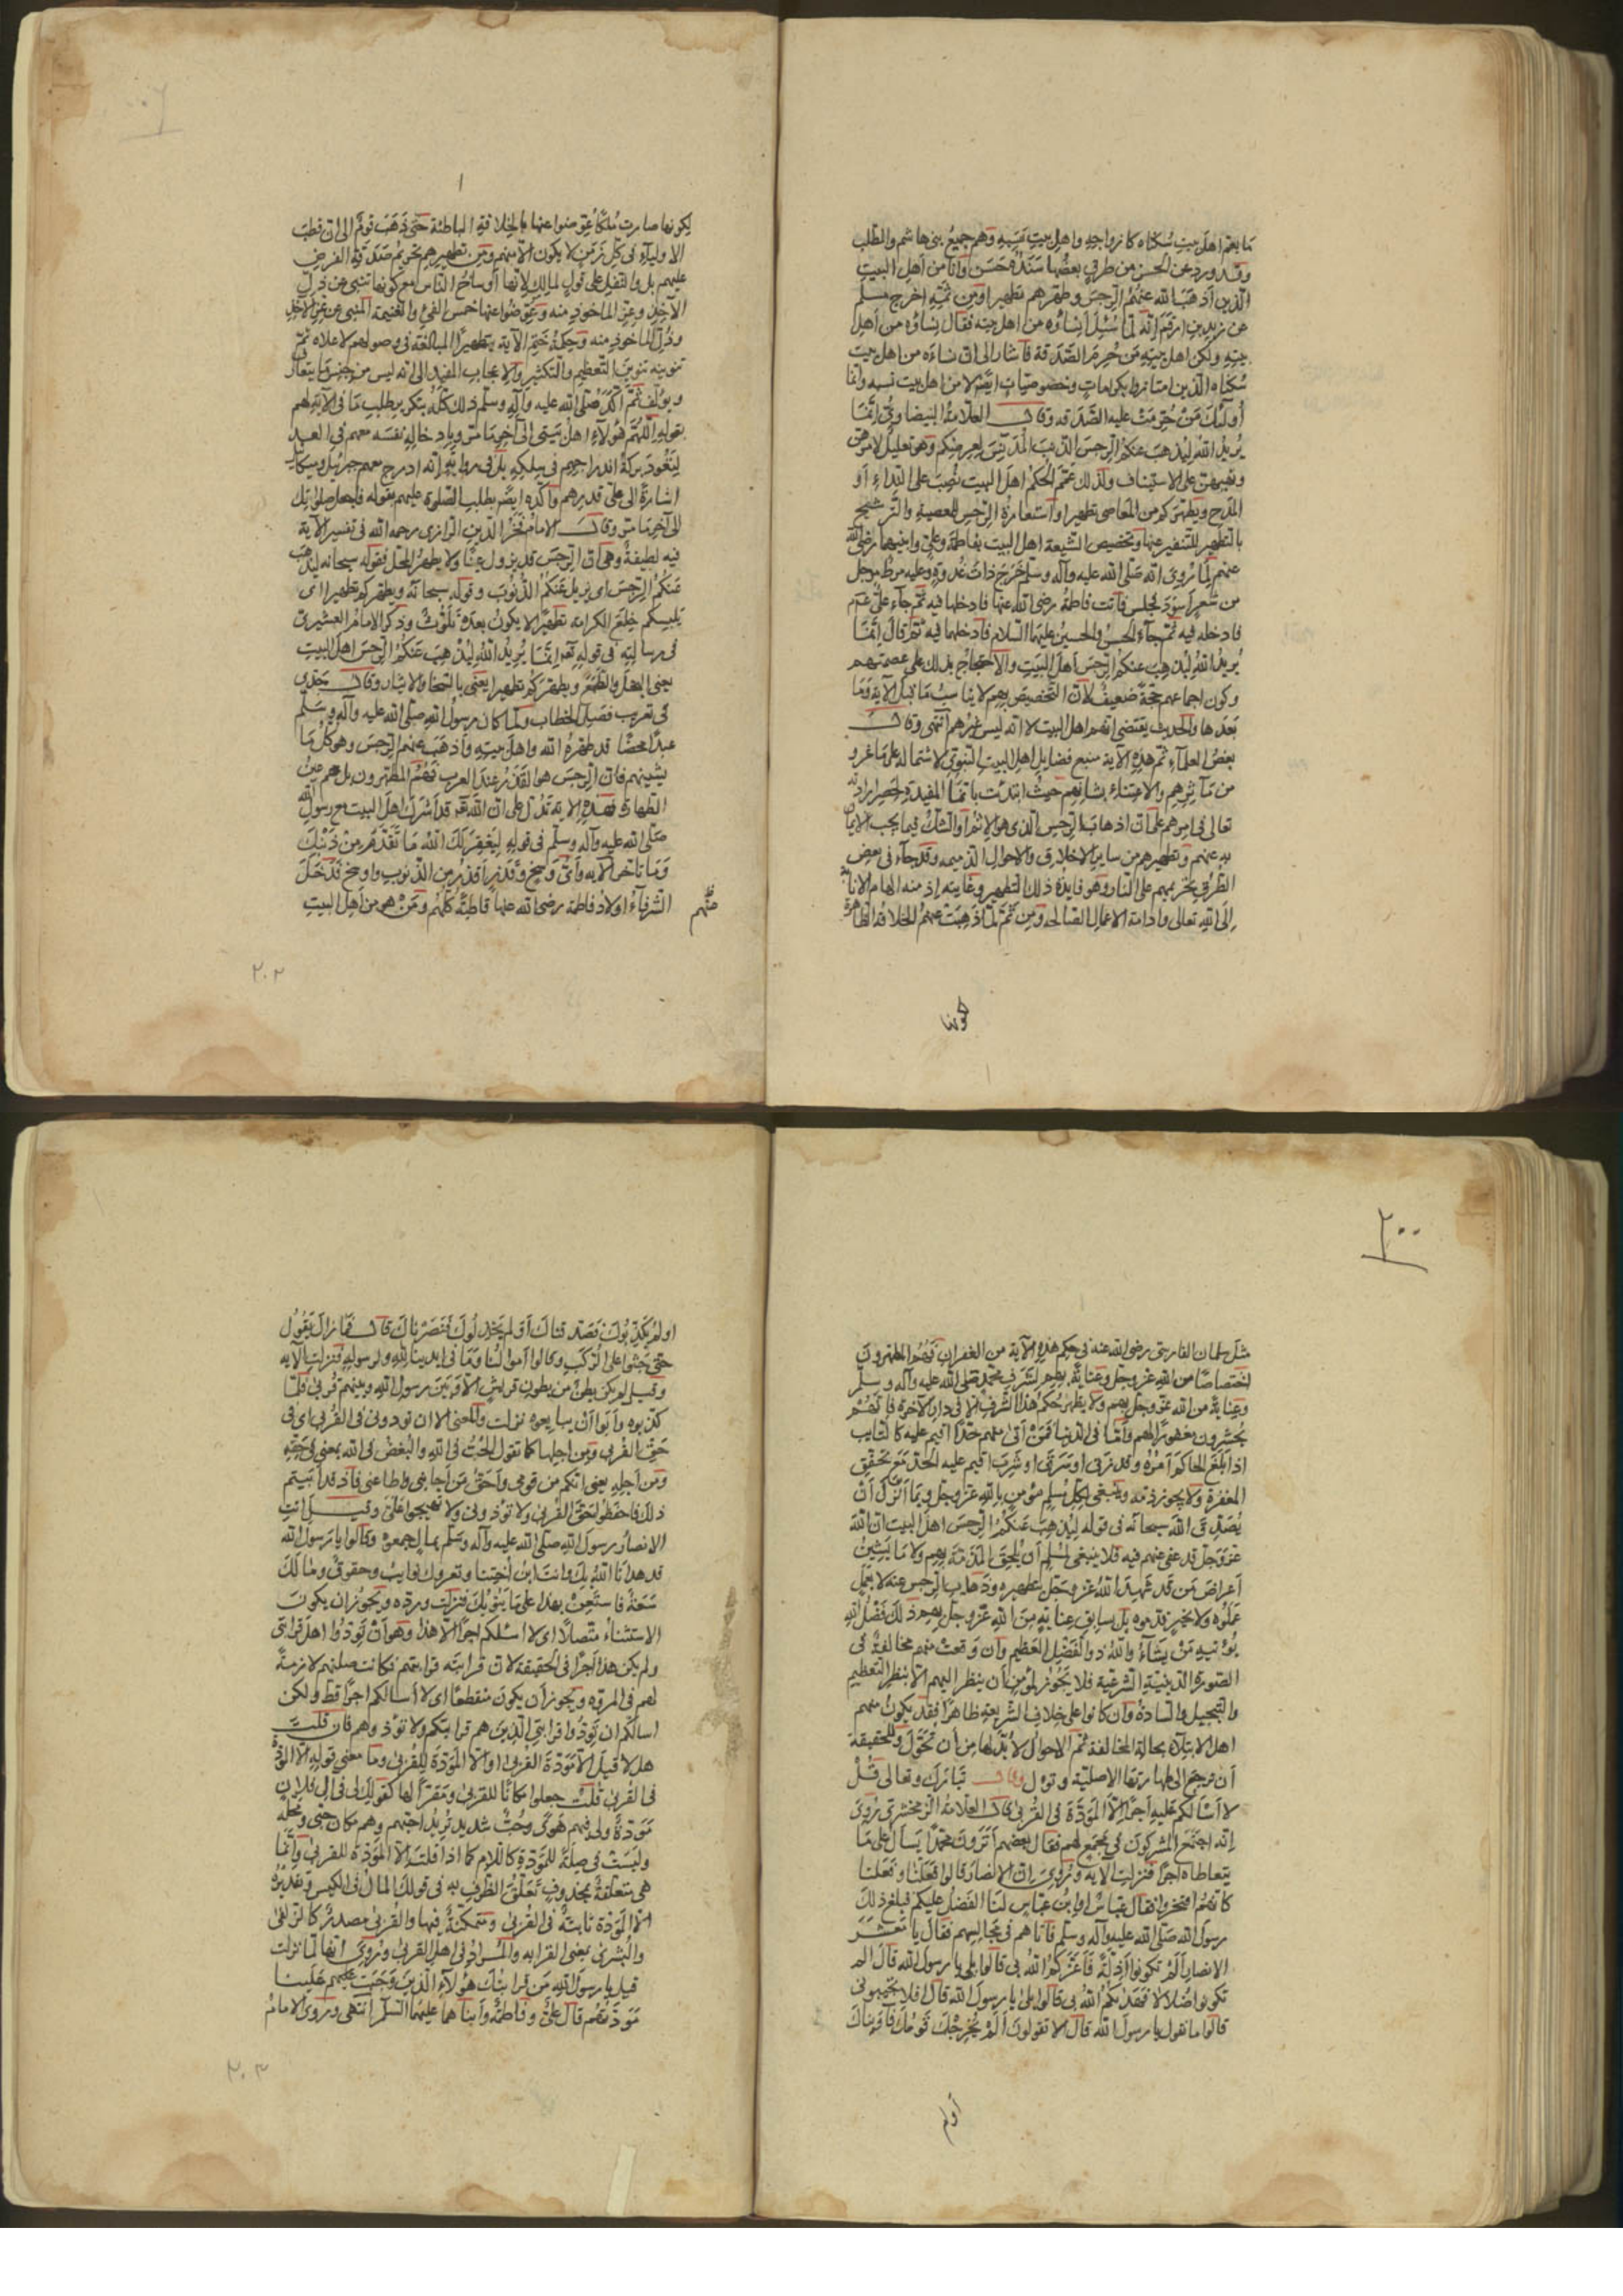 ما يعم اهل بيت سكناه كازواجه واهل بيت نسبه وهم جميع بنى هاشم والمطلب
وقد ورد عن الحسن من طرق بعضها سنده حسن وانا من اهل البيت
الذين اذهب الله عنهم الرجس وطهرهم تطهيرا ومن ثمّه اخرج مسلم
عن زيد بن ارقم انه لما سئل أنساؤه من اهل بيته فقال نساؤه من اهل
بيته ولكن اهل بيته من حُرِمَ الصدقة فاشار الى ان نساءه من اهل بيت
سكناه الذين امتازوا بكرامات وخصوصيات ايضا لا من اهل بيت نسبه وانما
أولئك من حرمت عليه الصدقه وقال العلامة البيضاوى إنما
يريد الله ليذهب عنكم الرجس الذنب المدنس لعرضكم وهو تعليل لامرهن
ونهيهن على الاستيناف ولذلك عمّم الحكم اهل البيت نصب على النداء أو
المدح ويطهركم من المعاصى تطهيرا واستعارة الرجس للمعصية والترشيح
بالتطهير للتنفير عنها وتخصيص الشيعة اهل البيت بفاطمة وعلى وابنيهما رضى الله
عنهم لما روى انه صلى الله عليه وآله وسلم خرج ذات غدوة وعليه مرط مرجل
من شعر أسود فجلس فاتت فاطمة رضى الله عنها فادخلها فيه ثم جاء علىّ
فادخله فيه ثم جاء الحسن والحسين عليهما السلام فادخلهما فيه ثم قال إنما
يريد الله ليذهب عنكم الرجس أهل البيت والاحتجاج بذلك على عصمتهم
وكون اجماعهم حجة ضعيف لان التخصيص بهم لا يناسب ما قبل الآية وما
بعدها والحديث يقتضى انهم اهل البيت لا انه ليس غيرهم انتهى وقال
بعض العلماء ثم هذه الآية منبع فضايل اهل البيت النبوى لاشتماله على ما غرر
من مآثرهم والاعتناء بشانهم حيث ابتدئت بانما المفيدة لحصر ارادته
تعالى فى امرهم على ان اذهاب الرجس الذى هو الاثم أو الشك فيما يجب الايمان
به عنهم وتطهيرهم من ساير الاخلاق والاحوال الذميمه وقد جاء فى بعض
الطرق تحريمهم على النار وهو فايدة ذلك التطهير وغايته إذ منه الهام الانابة
إلى الله تعالى وادامة الاعمال الصالحه ومن ثمّ لما ذهبت عنهم الخلافة الظاهرة
لكونها
لكونها صارت ملكًا عوّضوا عنها بالخلافة الباطنة حتى ذهب قوم الى ان قطب
الاولياء فى كل زمن لا يكون الا منهم ومن تطهيرهم تحريم صدقة الفرض
عليهم بل والنفل على قول لمالك لانها أوساخ الناس مع كونها تنبى عن ذل
الآخذ وعز الماخوذ منه وعوّضوا عنها خمس الفئ والغنيمة المنبى عن عز الآخذ
وذل الماخوذ منه وحكمة ختم الآية بتطهيرًا المبالغة فى وصولهم لاعلاه ثم
تنوينه تنوين التعظيم والتكثير والاعجاب المفيد الى انه ليس من جنس ما يتعارف
ويؤلف ثم اكد صلى الله عليه وآله وسلم ذلك كله بتكرير طلب ما فى الآية لهم
بقوله اللهم هؤلاء اهل بيتى الى آخر ما مرّ وبادخاله نفسه معهم فى العد
لتعود بركة اندراجهم فى سلكه بل فى رواية انه ادرج معهم جبرئيل وميكائيل
اشارة الى علىّ قدرهم واكده ايضا بطلب الصلوة عليهم بقوله فاجعل صلواتك
الى آخر ما مرّ وقال الامام فخر الدين الرازى رحمه الله فى تفسير الآية
فيه لطيفة وهى ان الرجس قد يزول عينًا ولا يطهر المحل فقوله سبحانه ليذهب
عنكم الرجس اى يزيل عنكم الذنوب وقوله سبحانه ويطهركم تطهيرا اى
يلبسكم خلع الكرامة تطهيرًا لا يكون بعده تلوّث وذكر الامام القشيرى
فى رسالته فى قوله تع انما يريد الله ليذهب عنكم الرجس اهل البيت
يعنى البخل والطمع ويطهركم تطهيرا يعنى بالسخا والايثار وقال جدى
فى تعريب فصل الخطاب ولما كان رسول الله صلى الله عليه وآله وسلم
عبدًا محضًا قد طهره الله واهل بيته وأذهب عنهم الرجس وهو كل ما
يشينهم فان الرجس هو القذر عند العرب فهم المطهرون بل هم عين
الطهارة فهذه الآية تدل على ان الله تع قد أشرك اهل البيت مع رسول الله
صلى الله عليه وآله وسلم فى قوله ليغفر لك الله ما تقدم من ذنبك
وما تاخر الآيه وأى وسخ وقذر أقذر من الذنوب واوسخ فدخل
الشرفاء اولاد فاطمة رضى الله عنها قاطبة كلهم ومن هو من اهل البيت
منهم
٢٠٢
٢٠٠
مثل سلمان الفارسى رضى الله عنه فى حكم هذه الآية من الغفران فهم المطهرون
اختصاصًا من الله عز وجل وعناية بهم لشرف محمد صلى الله عليه وآله وسلم
وعناية من الله عز وجل بهم ولا يظهر حكم هذا الشرف الا فى دار الآخرة فانهم
يحشرون مغفورًا لهم وأما فى الدنيا فمن أتى منهم حدًّا اقيم عليه كالتايب
اذا بلغ الحاكم أمره وقد زنى او سرق او شرب اقيم عليه الحد مع تحقق
المغفرة ولا يجوز ذمه وينبغى لكل مسلم مؤمن بالله عز وجل وبما أنزل أن
يصدق الله سبحانه فى قوله ليذهب عنكم الرجس اهل البيت ان الله
عز وجل قد عفى عنهم فيه فلا ينبغى لمسلم أن يلحق المذمة بهم ولا ما يشين
أعراض من قد شهد الله عز وجل بتطهيره وذهاب الرجس عنه لا بعمل
عملوه ولا بخير قدموه بل بسابق عناية من الله عز وجل بهم ذلك فضل الله
يؤتيه من يشاء والله ذو الفضل العظيم وان وقعت منهم مخالفة فى
الصورة الدينية الشرعية فلا يجوز لمؤمن أن ينظر اليهم الا بنظر التعظيم
والتبجيل والسادة وان كانوا على خلاف الشريعة ظاهرًا فقد يكون منهم
اهل الابتلاء بحالة المخالفة ثم الاحوال لا بد لها من أن تحوّل وللحقيقة
أن ترجع الى طهارتها الاصلية وتؤل وقال تبارك وتعالى قل
لا أسالكم عليه أجرًا إلا المودّة فى القربى قال العلامة الزمخشرى روى
انه اجتمع المشركون فى مجمع لهم فقال بعضهم أترون محمدًا يسأل على ما
يتعاطاه اجرًا فنزلت الآيه وروى ان الانصار قالوا فعلنا وفعلنا
كانهم افتخروا فقال عباس او ابن عباس لنا الفضل عليكم فبلغ ذلك
رسول الله صلى الله عليه وآله وسلم فاتاهم فى مجالسهم فقال يا معشر
الانصار ألم تكونوا أذلة فأعزكم الله بى قالوا بلى يا رسول الله قال الم
تكونوا ضلالا فهداكم الله بى قالوا بلى يا رسول الله قال افلا تجيبونى
قالوا ما نقول يا رسول الله قال الا تقولون ألم يخرجك قومك فآويناك
أولم
اولم يكذبوك فصدقناك أولم يخذلوك فنصرناك قال فما زال يقول
حتى جثوا على الركب وقالوا أموالنا وما فى ايدينا لله ولرسوله فنزلت الآيه
وقيل لم يكن بطن من بطون قريش الا وبين رسول الله وبينهم قربى فلما
كذبوه وأبوا أن يبايعوه نزلت والمعنى الا ان تودونى فى القربى اى فى
حق القربى ومن اجلها كما تقول الحبّ فى الله والبغض فى الله بمعنى فى حقه
ومن أجله يعنى انكم من قومى وأحق من اجابنى واطاعنى فاذ قد أبيتم
ذلك فاحفظوا حق القربى ولا تؤذونى ولا تهيجوا علىّ وقيل اتت
الانصار رسول الله صلى الله عليه وآله وسلم بمال جمعوه وقالوا يا رسول الله
قد هدانا الله بك وانت ابن أختنا وتعروك نوايب وحقوق وما لك
سعة فاستعن بهذا على ما ينوبك فنزلت ورده ويجوز ان يكون
الاستثناء متصلًا اى لا اسئلكم اجرًا الا هذا وهو أن تودوا اهل قرابتى
ولم يكن هذا أجرًا فى الحقيقة لان قرابته قرابتهم فكانت صلتهم لازمة
لهم فى المروه ويجوز أن يكون منقطعًا اى لا أسالكم اجرًا قط ولكن
اسالكم ان تودوا قرابتى الذين هم قرابتكم ولا تؤذوهم فان قلت
هلا قيل الا مودة القربى او الا المودة للقربى وما معنى قوله الا المودة
فى القربى قلت جعلوا مكانًا للقربى ومقرًا لها كقولك لى فى آل فلان
مودة ولى فيهم هوى وحب شديد تريد احبهم وهم مكان حبى ومحله
وليست فى صلة للمودة كاللام كما اذا قلت الا المودة للقربى وانما
هى متعلقة بمحذوف تعلق الظرف به فى قولك المال فى الكيس وتقديره
الا المودة ثابتة فى القربى ومتمكنة فيها والقربى مصدر كالزلفى
والبشرى بمعنى القرابه والمراد فى اهل القربى وروى انها لما نزلت
قيل يا رسول الله من قرابتك هؤلاء الذين وجبت علينا
مودتهم قال علىّ وفاطمة وابناهما عليهما السلم انتهى وروى الامام